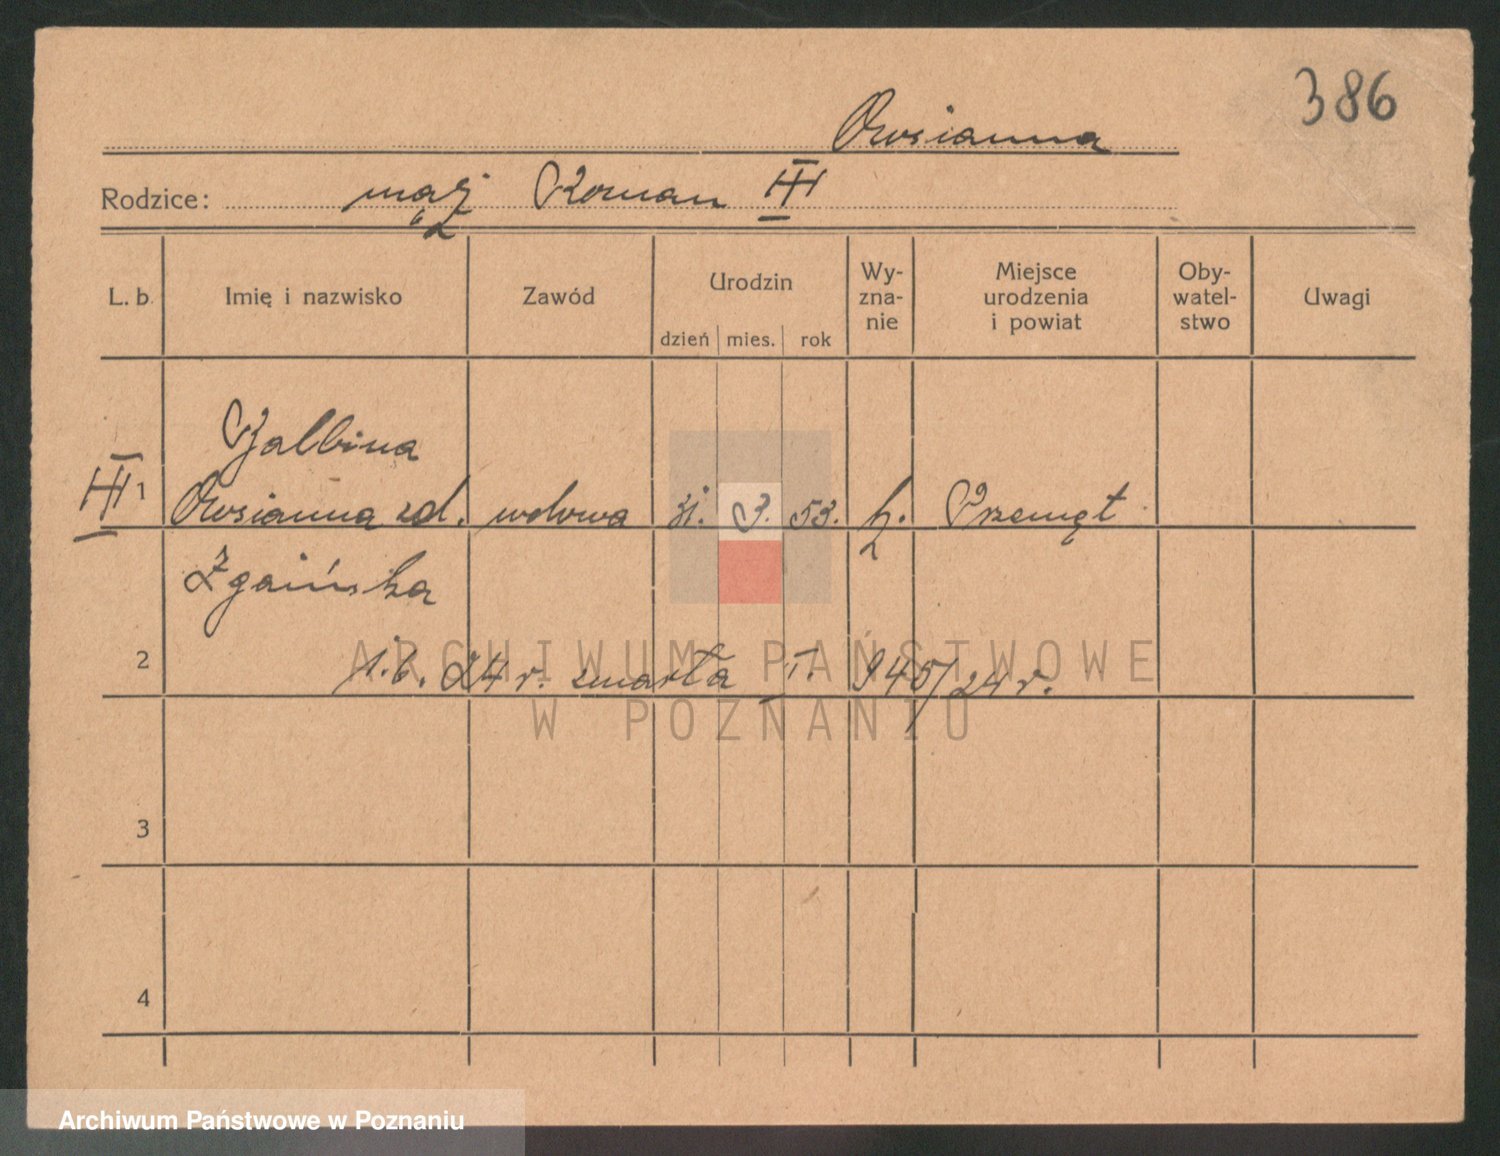 386
Owsianna
Rodzice: mąż Roman III
L. b. Imię i nazwisko Zawód Urodzin dzień mies. rok Wy-zna-nie Miejsce urodzenia i powiat Oby-watel-stwo Uwagi
Balbina
III 1 Owsianna zd. wdowa 31. 3. 53. k. Przemęt
Zgaińska
2 1.6. 24 r. zmarła I. 945/24 r.
3
4
ARCHIWUM PAŃSTWOWE
W POZNANIU
Archiwum Państwowe w Poznaniu